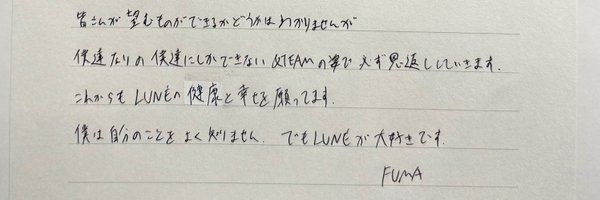 皆さんが望むものができるかどうかはわかりませんが
僕達なりの僕達にしかできない&TEAMの姿で必ず恩返ししていきます.
これからもLUNÉの健康と幸せを願ってます.
僕は自分のことをよく知りません. でもLUNÉが大好きです.
FUMA